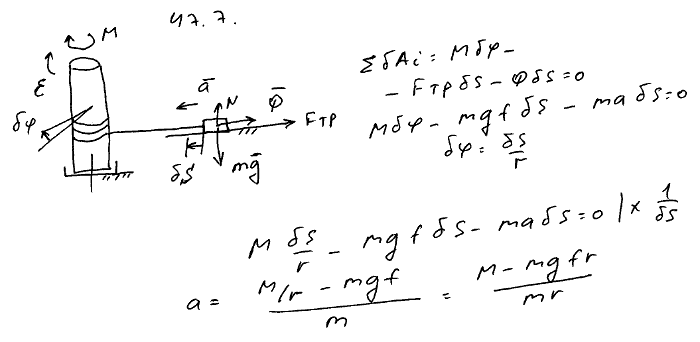 47.7.
M
ε
δφ
ā
N
Φ̄
Fтр
δS
mḡ
ΣδAi = Mδφ −
− Fтр δS − ΦδS = 0
Mδφ − mgf δS − ma δS = 0
δφ = δS/r
M δS/r − mgf δS − ma δS = 0 | × 1/δS
a = (M/r − mgf)/m = (M − mgfr)/(mr)